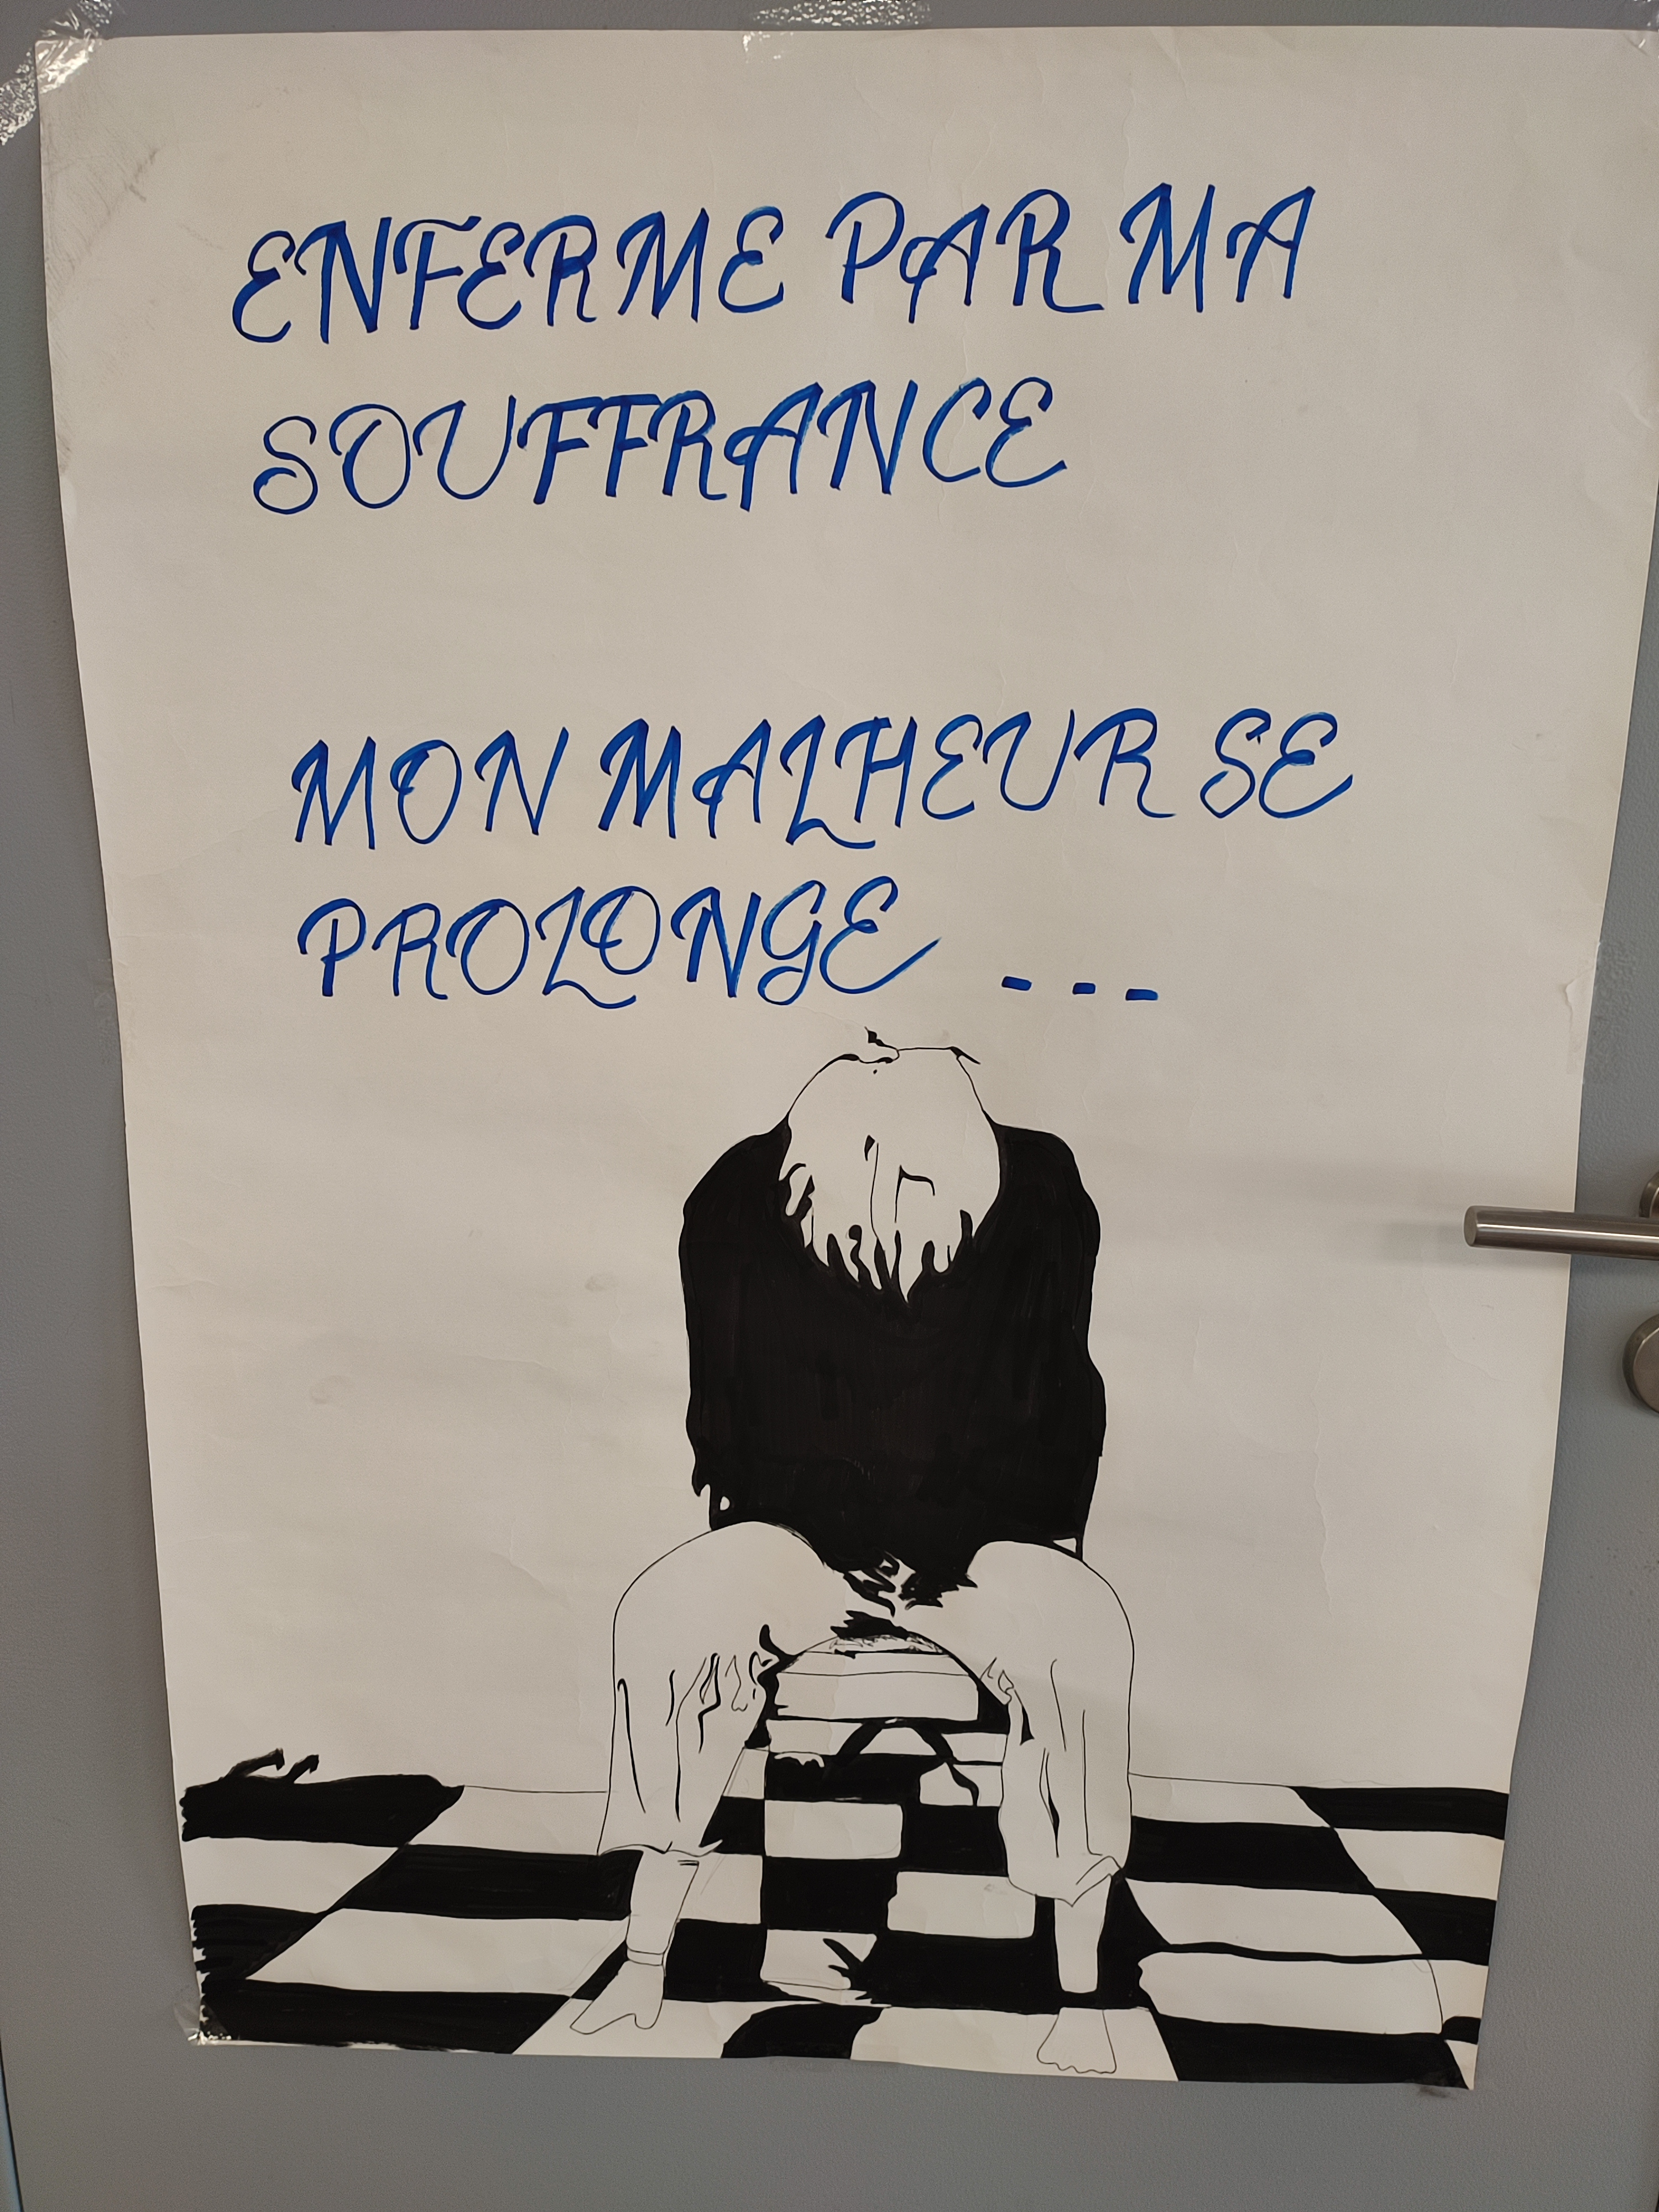 ENFERME PAR MA
SOUFFRANCE
MON MALHEUR SE
PROLONGE ...